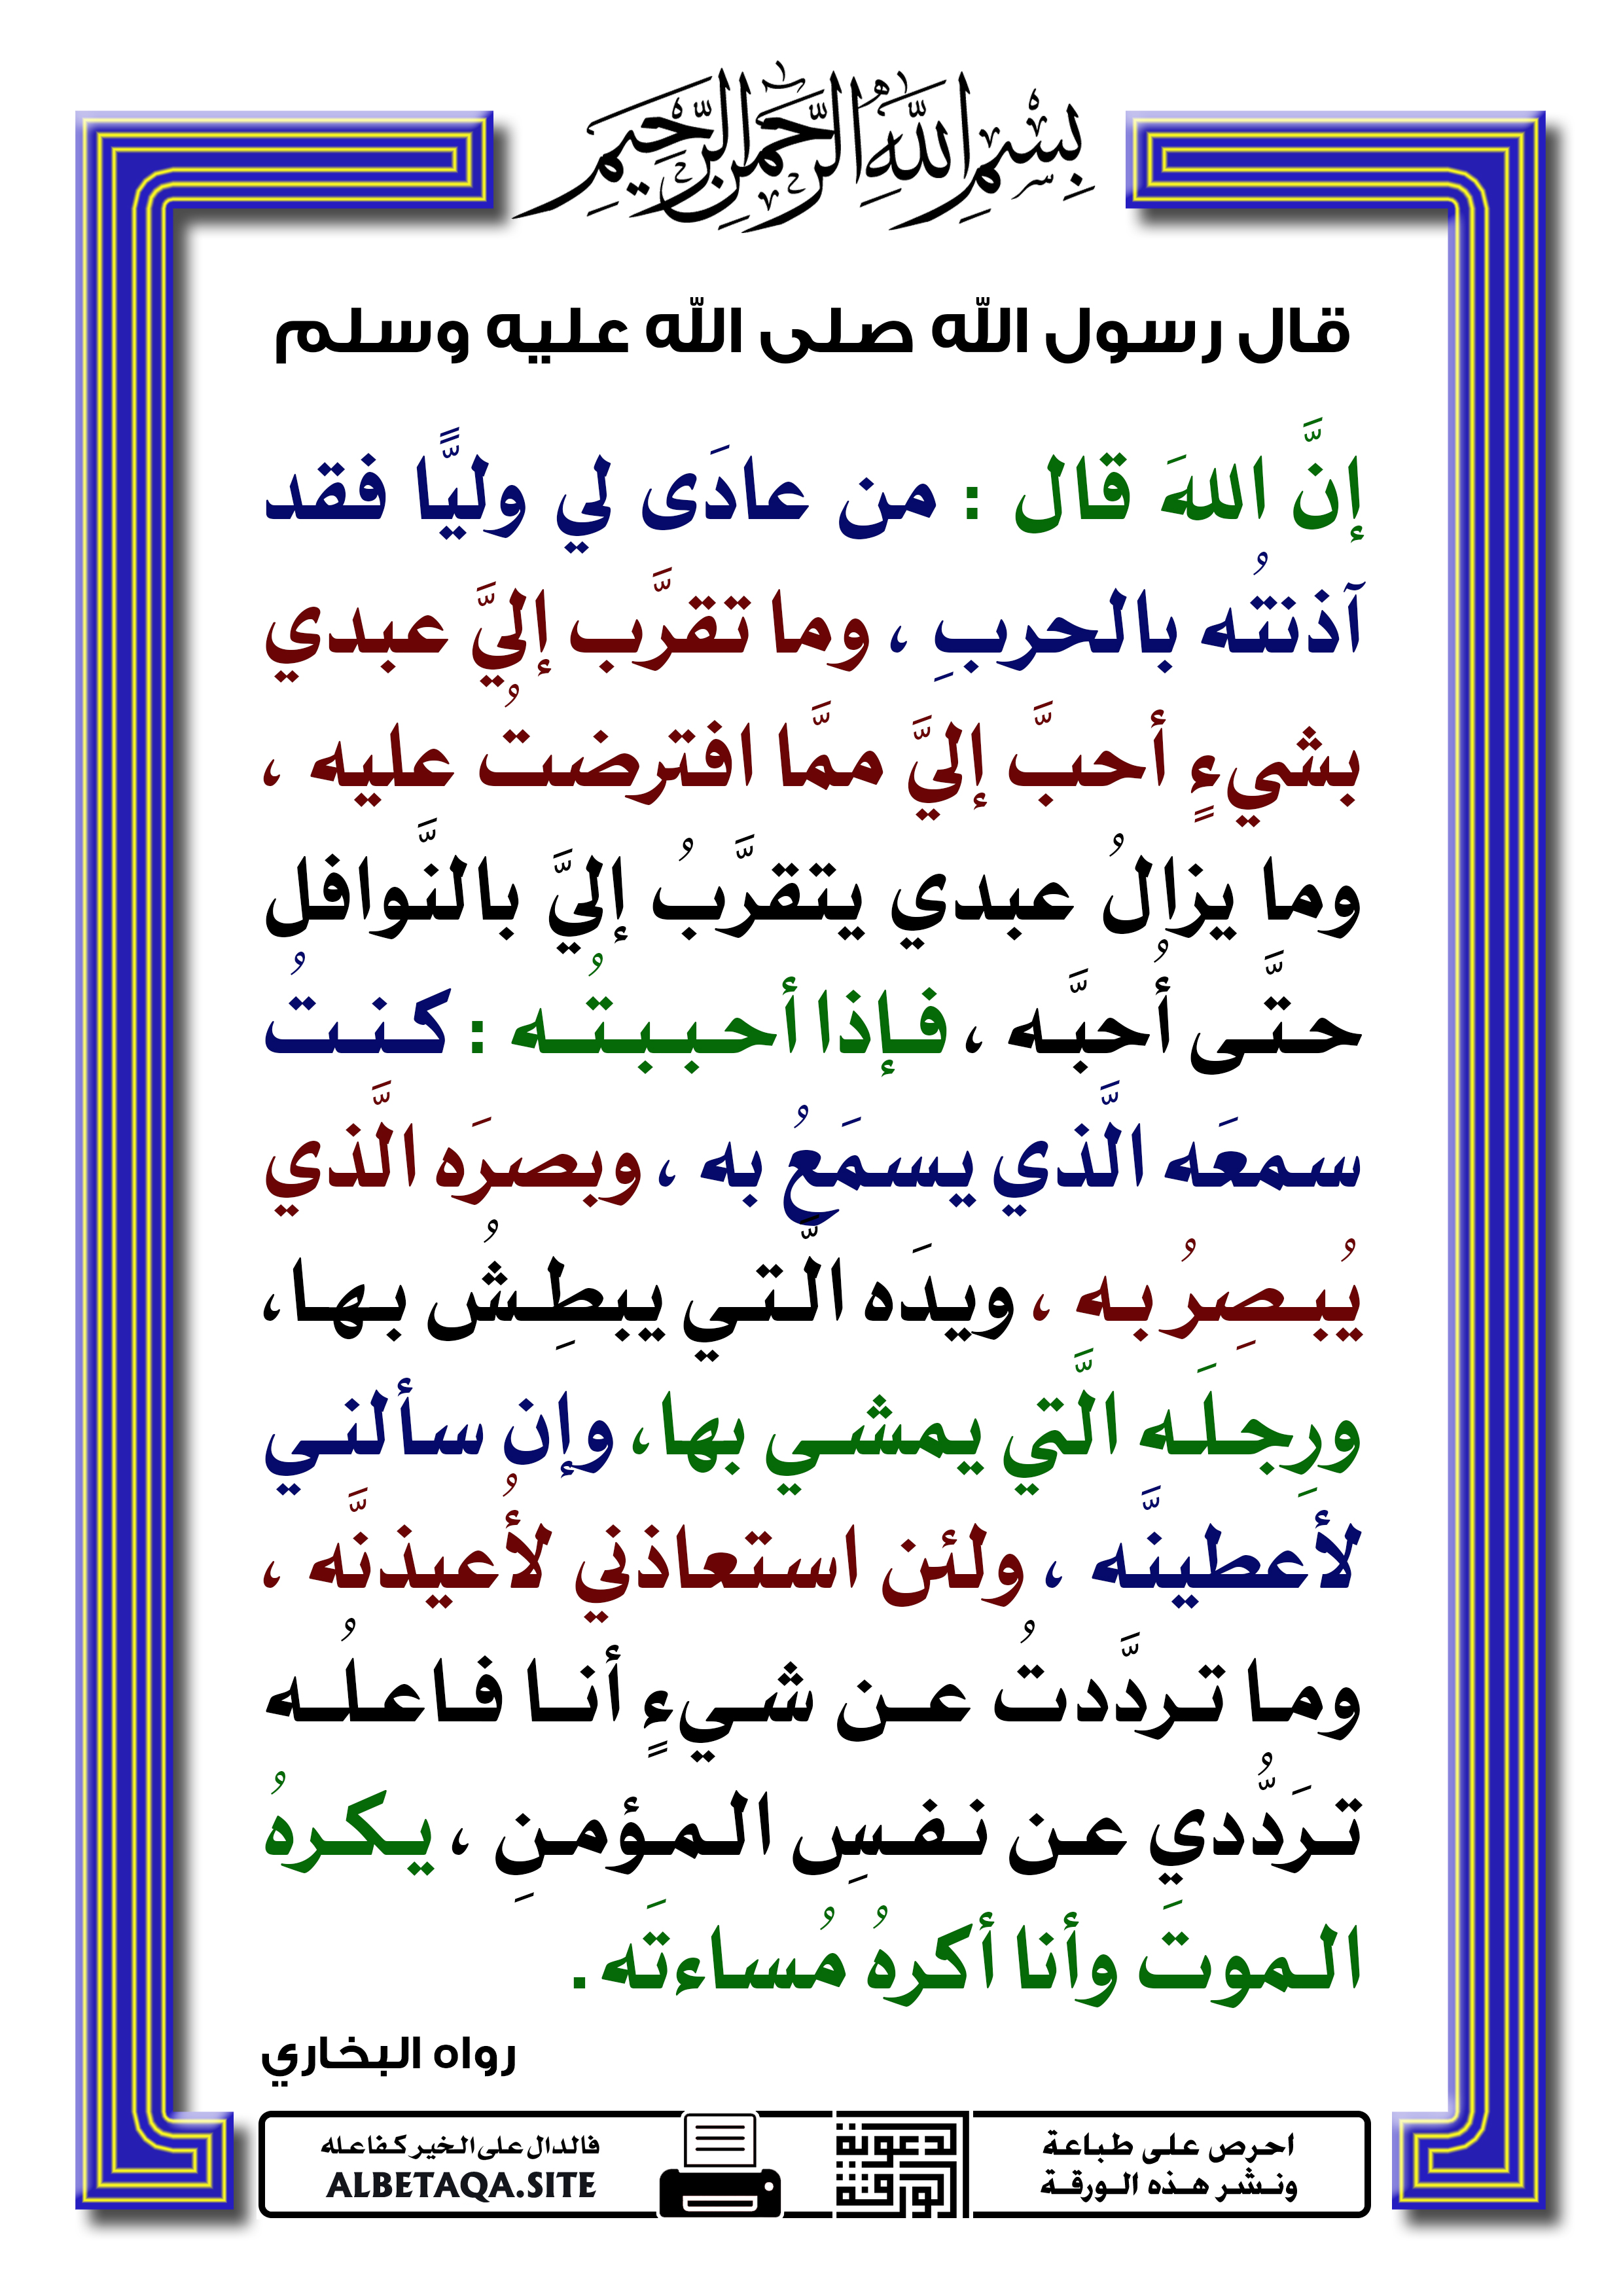 بِسْمِ اللَّهِ الرَّحْمَٰنِ الرَّحِيمِ
قال رسول الله صلى الله عليه وسلم
إنَّ اللهَ قال : من عادَى لي وليًّا فقد
آذنتُه بالحربِ ، وما تقرَّب إليَّ عبدي
بشيءٍ أحبَّ إليَّ ممَّا افترضتُ عليه ،
وما يزالُ عبدي يتقرَّبُ إليَّ بالنَّوافل
حتَّى أُحبَّه ، فإذا أحببتُه : كنتُ
سمعَه الَّذي يسمَعُ به ، وبصرَه الَّذي
يُبصِرُ به ، ويدَه الَّتي يبطِشُ بها،
ورِجلَه الَّتي يمشي بها، وإن سألني
لأعطينَّه ، ولئن استعاذني لأُعيذنَّه ،
وما تردَّدتُ عن شيءٍ أنا فاعلُه
ترَدُّدي عن نفسِ المؤمنِ ، يكرهُ
الموتَ وأنا أكرهُ مُساءتَه .
رواه البخاري
احرص على طباعة
ونشر هذه الورقة
الورقة
لدعوية
فالدال على الخير كفاعله
ALBETAQA.SITE